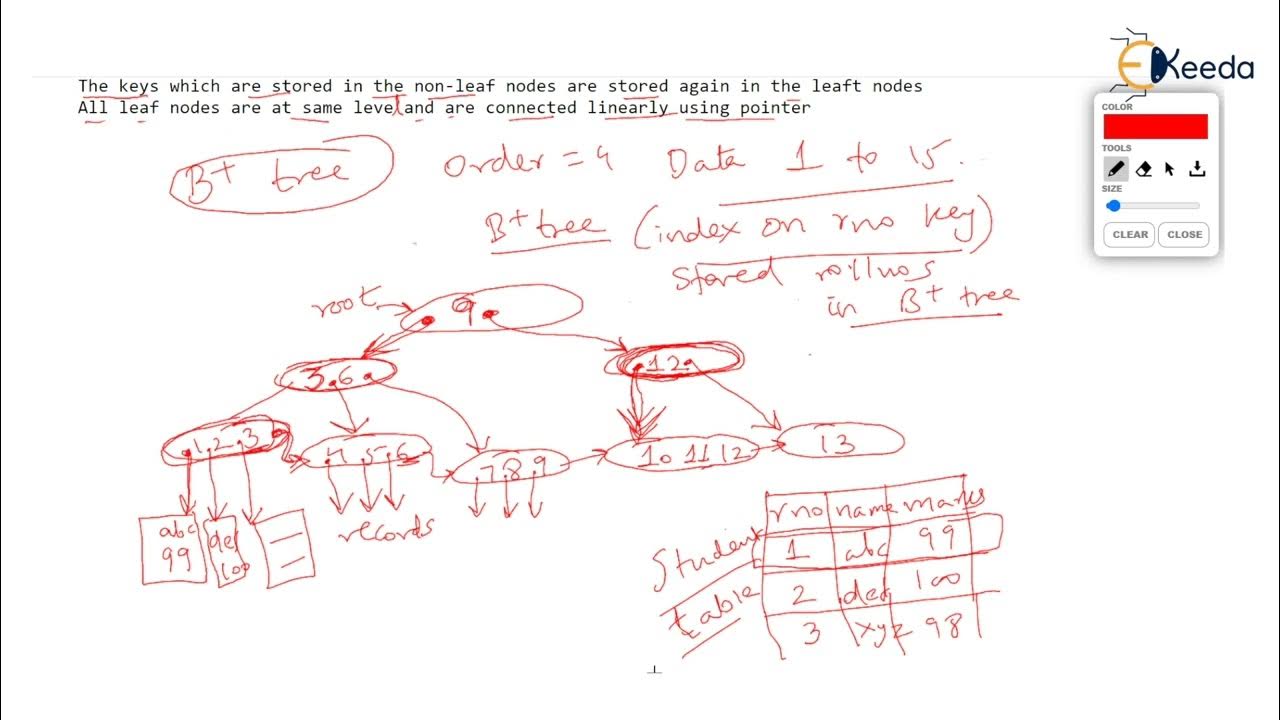 EKeeda
The keys which are stored in the non-leaf nodes are stored again in the leaft nodes
All leaf nodes are at same level and are connected linearly using pointer
COLOR
TOOLS
SIZE
CLEAR CLOSE
B+ tree Order = 4 Data 1 to 15.
B+ tree (index on rno key)
Stored rollnos
in B+ tree
root 9
3 6 12
1 2 3 4 5 6 7 8 9 10 11 12 13
abc
99
def
100
records
Student
table
rno name marks
1 abc 99
2 def 100
3 xyz 98